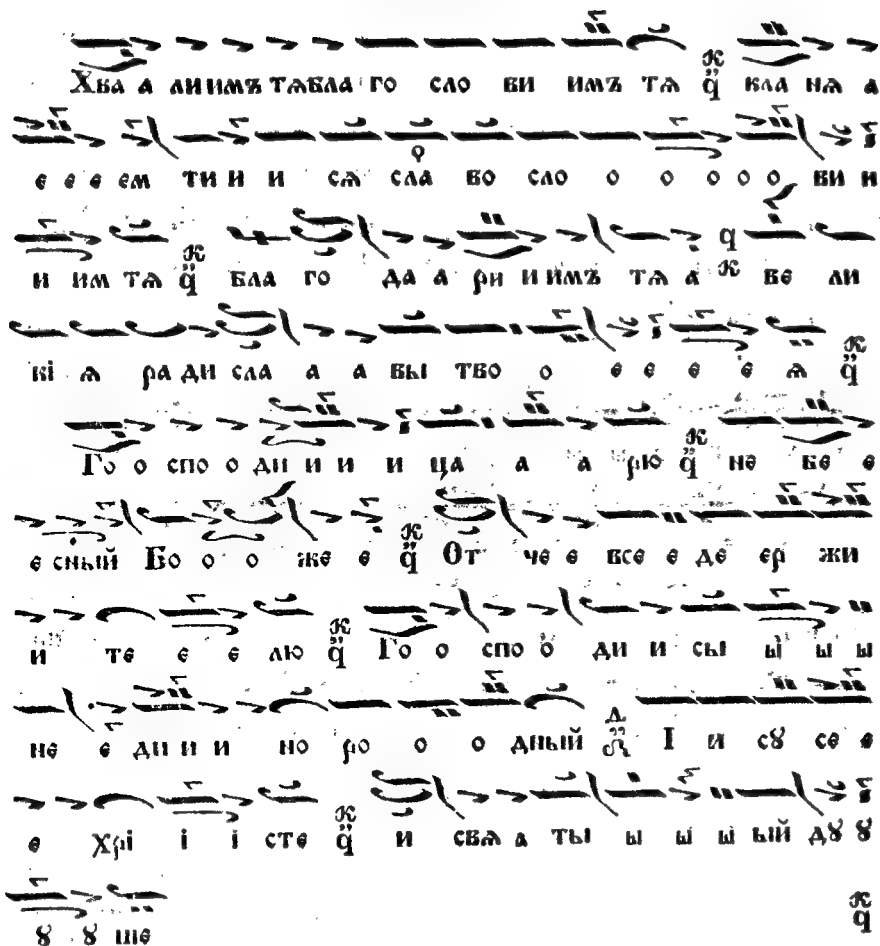 Хва а ли имъ тѧ бла го сло ви имъ тѧ кла нѧ а
е е е ем ти и и сѧ сла во сло о о о о о ви и
и им тѧ бла го да а ри и имъ тѧ а ве ли
кі ѧ ра ди сла а а вы тво о е е е е ѧ
Го о спо о ди и и и ца а а рю не бе е
е сный Бо о о же е От че е все е де ер жи
и те е е лю Го о спо о ди и сы ы ы ы
не е ди и и но ро о о дный І и сꙋ се е
е Хрі і і сте и свѧ а ты ы ы ы ый дꙋ ꙋ
ꙋ ꙋ ше